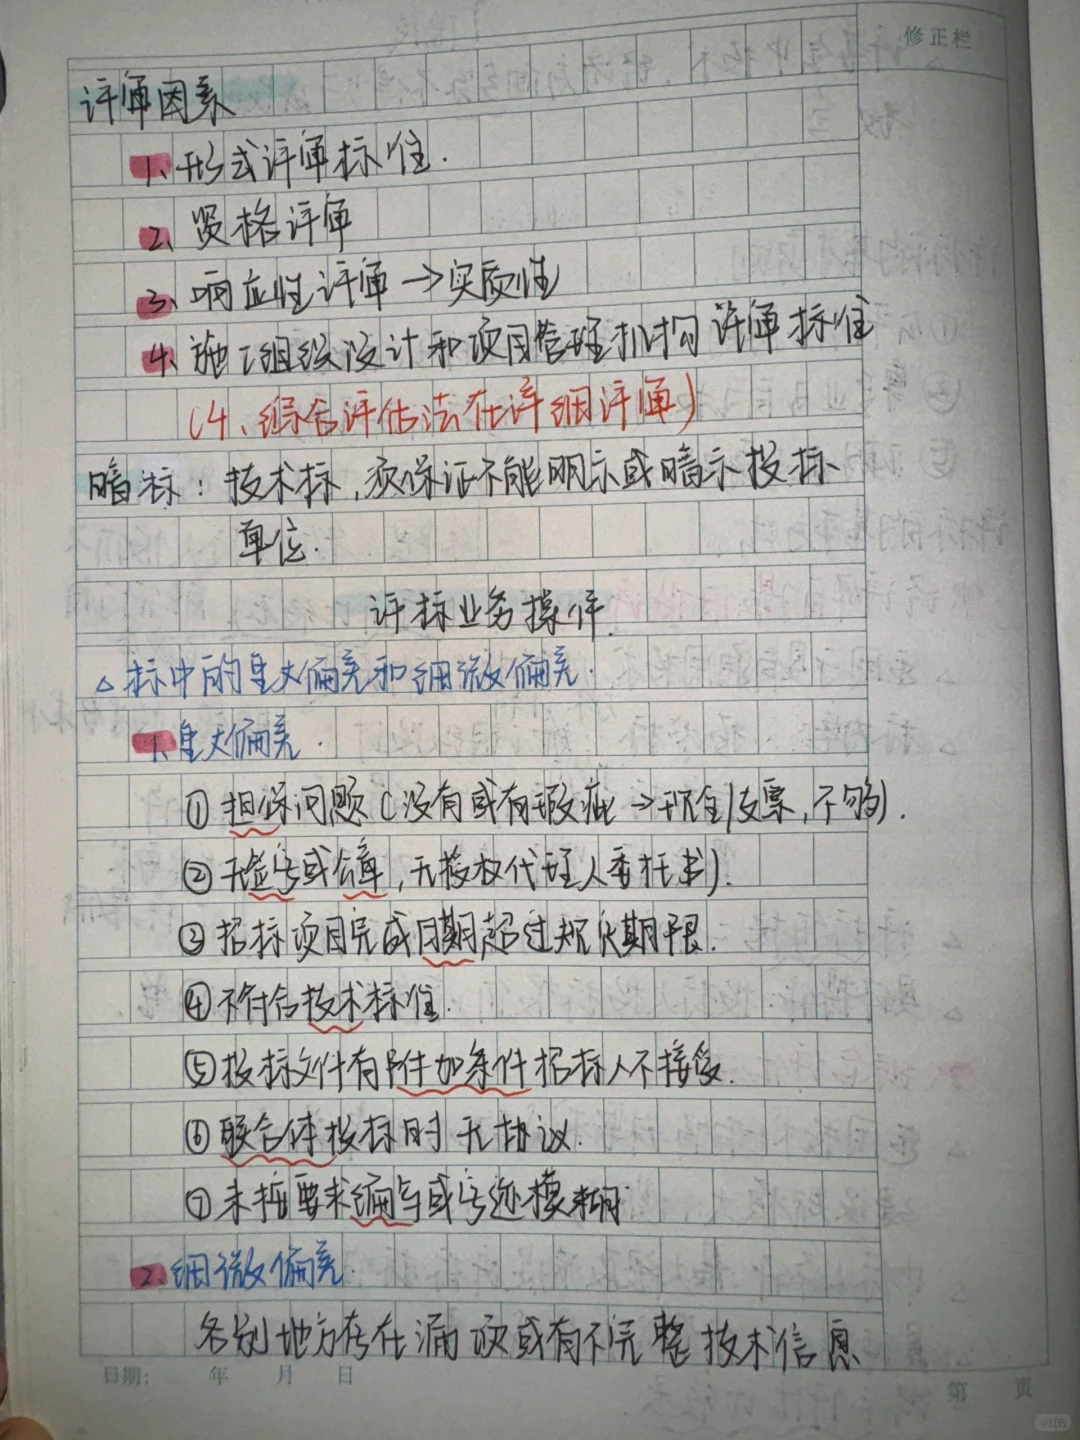 修正栏
评审因素
1、形式评审标准.
2、资格评审
3、响应性评审→实质性
4、施工组织设计和项目管理机构评审标准
(4、综合评估法在详细评审)
暗标:技术标,须保证不能明示或暗示投标
单位.
评标业务操作.
△标中的重大偏差和细微偏差.
1、重大偏差.
①担保问题(没有或有瑕疵→现金/支票,不够).
②无签字或公章,无授权代理人委托书).
③招标项目完成日期超过规定期限.
④不符合技术标准.
⑤投标文件有附加条件招标人不接受.
⑥联合体投标时无协议.
⑦未按要求编写或字迹模糊.
2、细微偏差.
各别地方存在漏项或有不完整技术信息
日期: 年 月 日
第 页
小红书